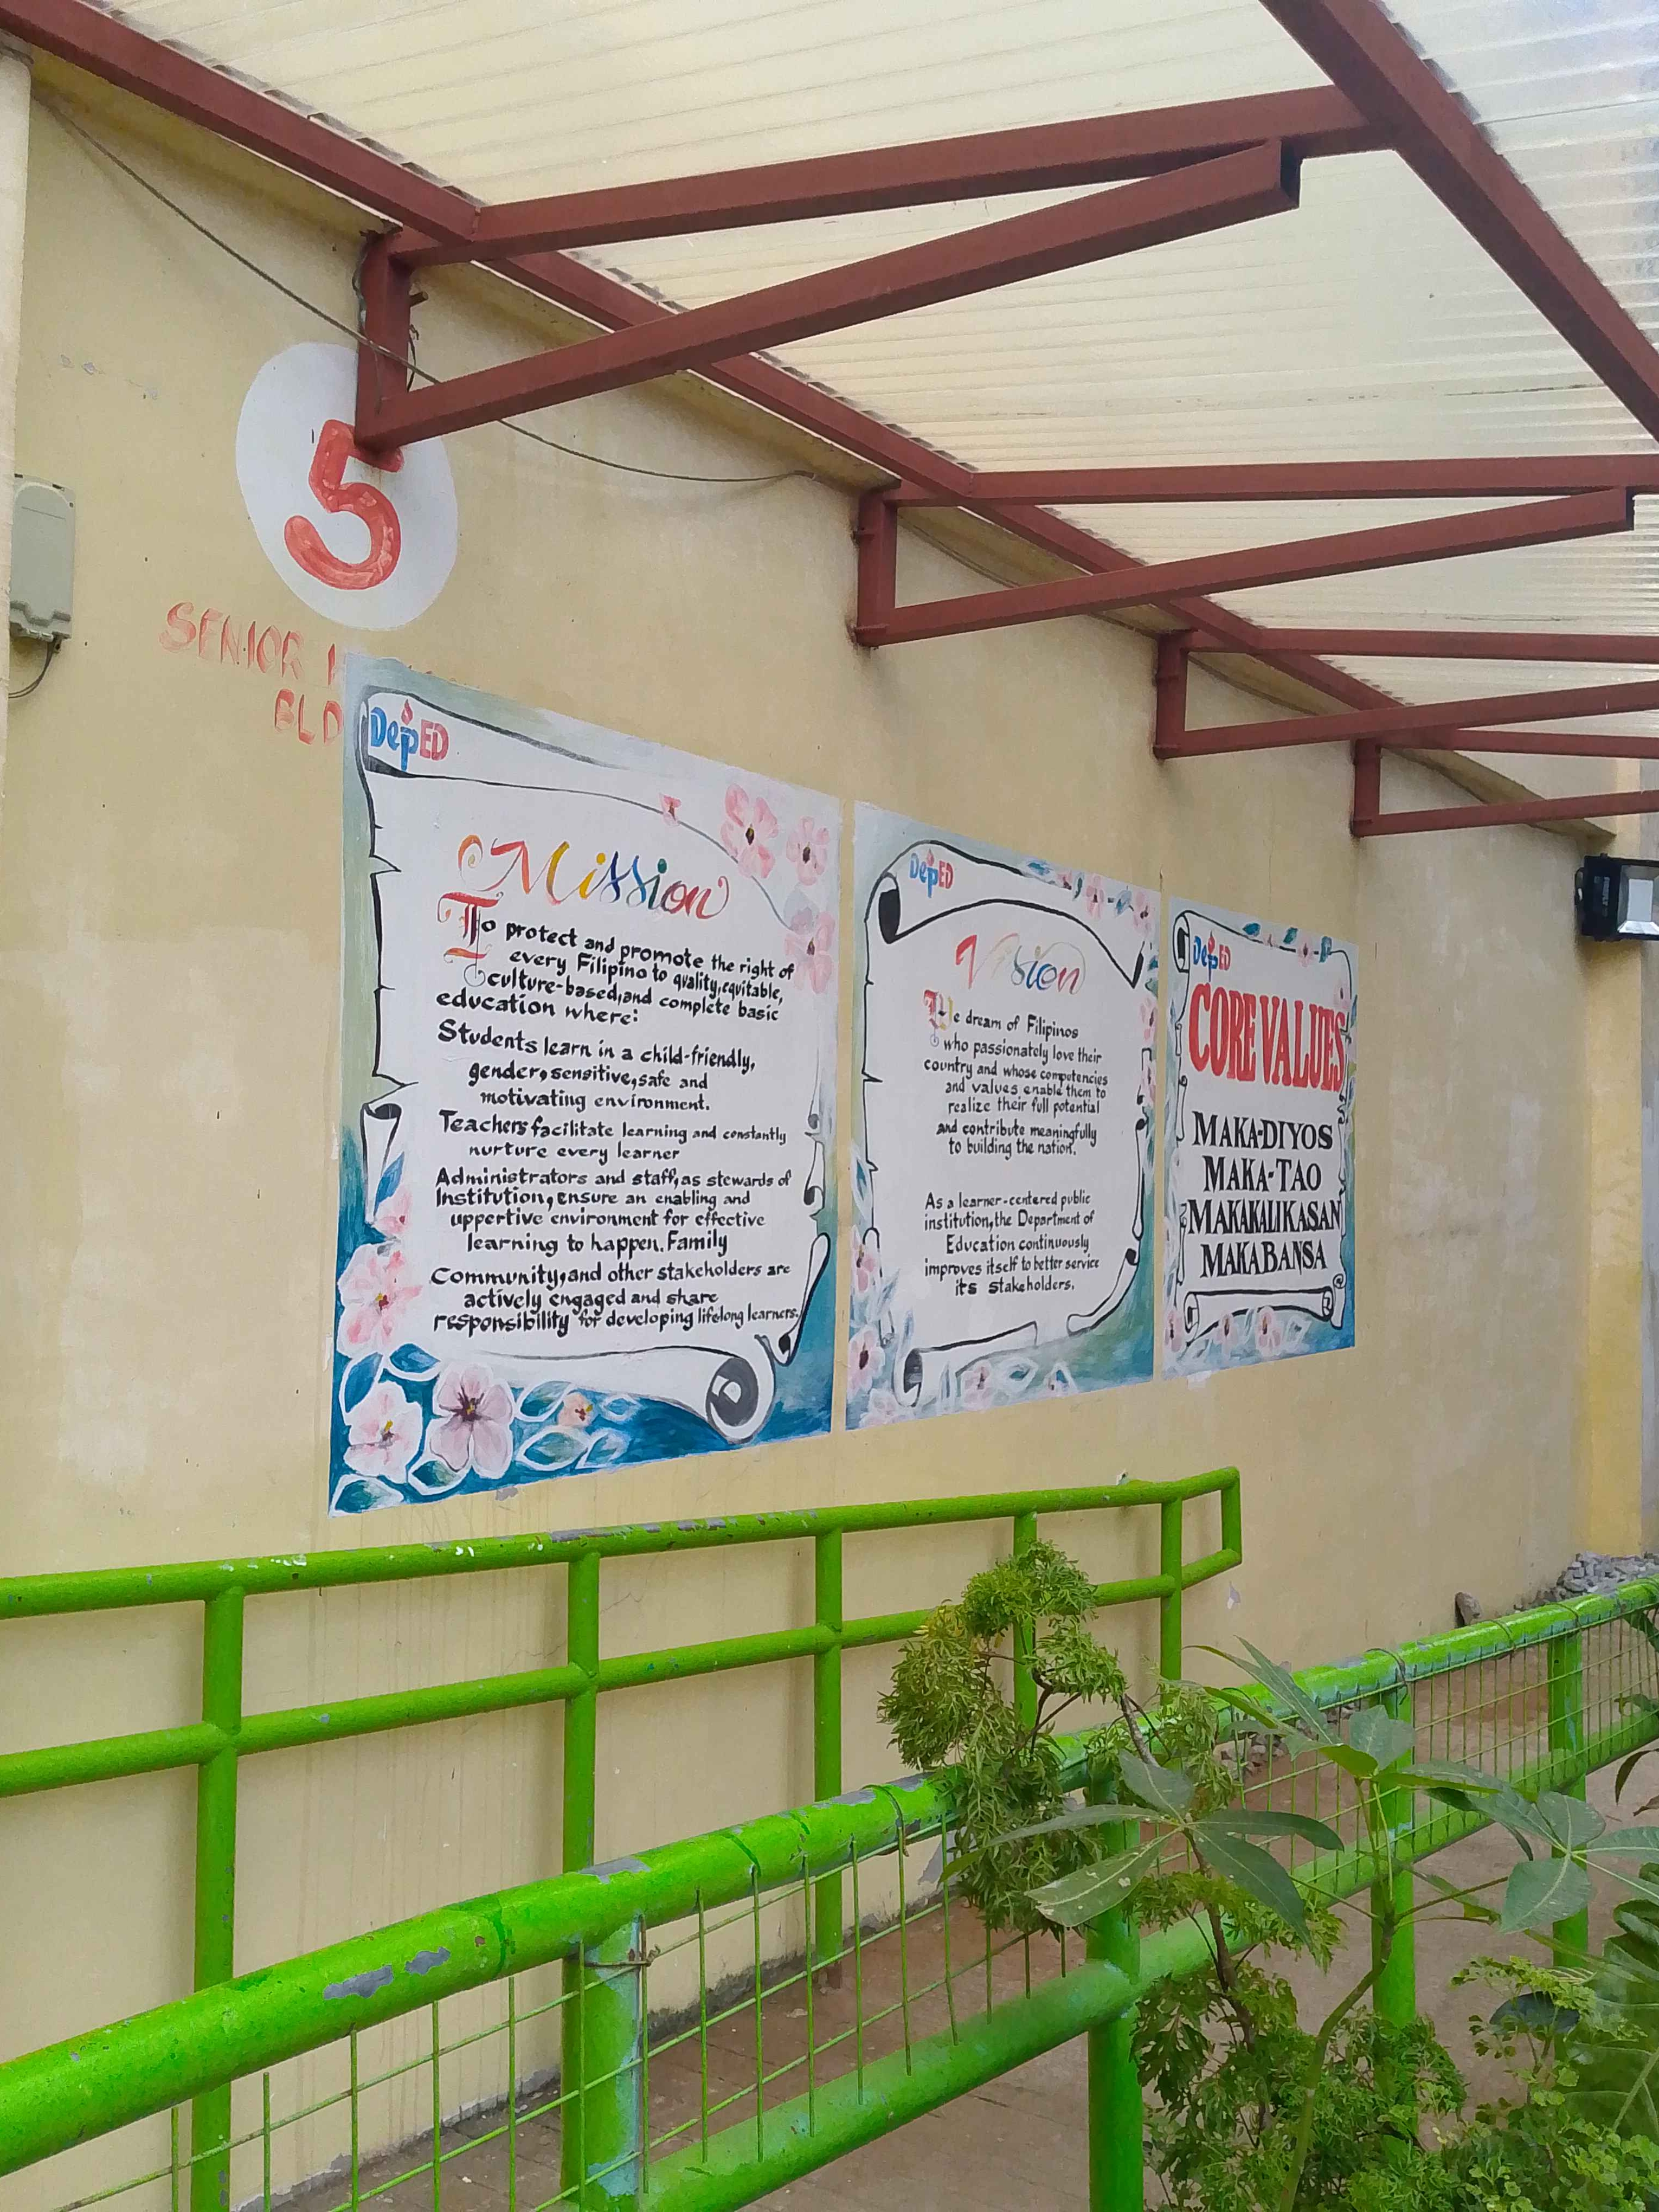 5
SENIOR
BLD
DepED
Mission
To protect and promote the right of
every Filipino to quality, equitable,
culture-based, and complete basic
education where:
Students learn in a child-friendly,
gender, sensitive, safe and
motivating environment.
Teachers facilitate learning and constantly
nurture every learner
Administrators and staff, as stewards of
Institution, ensure an enabling and
uppertive environment for effective
learning to happen. Family
Community, and other stakeholders are
actively engaged and share
responsibility for developing lifelong learners.
DepED
Vision
We dream of Filipinos
who passionately love their
country and whose competencies
and values enable them to
realize their full potential
and contribute meaningfully
to building the nation.
As a learner-centered public
institution, the Department of
Education continuously
improves itself to better service
its stakeholders.
DepED
CORE VALUES
MAKA-DIYOS
MAKA-TAO
MAKAKALIKASAN
MAKABANSA